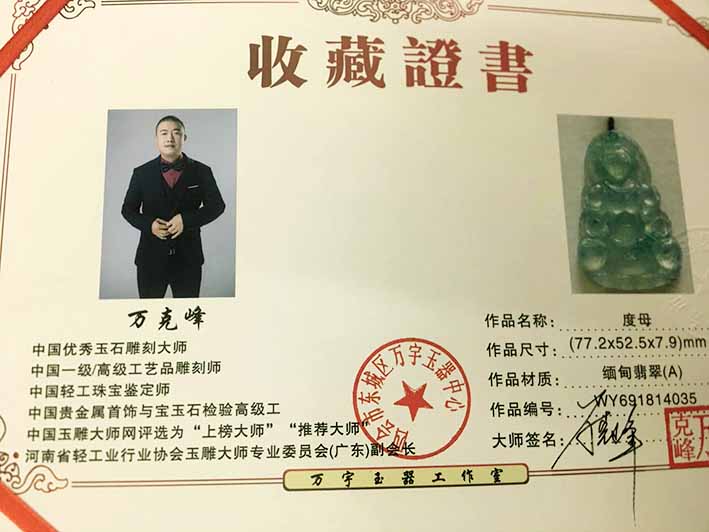 收藏證書
万克峰
中国优秀玉石雕刻大师
中国一级/高级工艺品雕刻师
中国轻工珠宝鉴定师
中国贵金属首饰与宝玉石检验高级工
中国玉雕大师网评选为“上榜大师”“推荐大师”
河南省轻工业行业协会玉雕大师专业委员会(广东)副会长
作品名称: 度母
作品尺寸: (77.2x52.5x7.9)mm
作品材质: 缅甸翡翠(A)
作品编号: WY691814035
大师签名:
四会市东城区万宇玉器中心
克峰
万宇玉器工作室